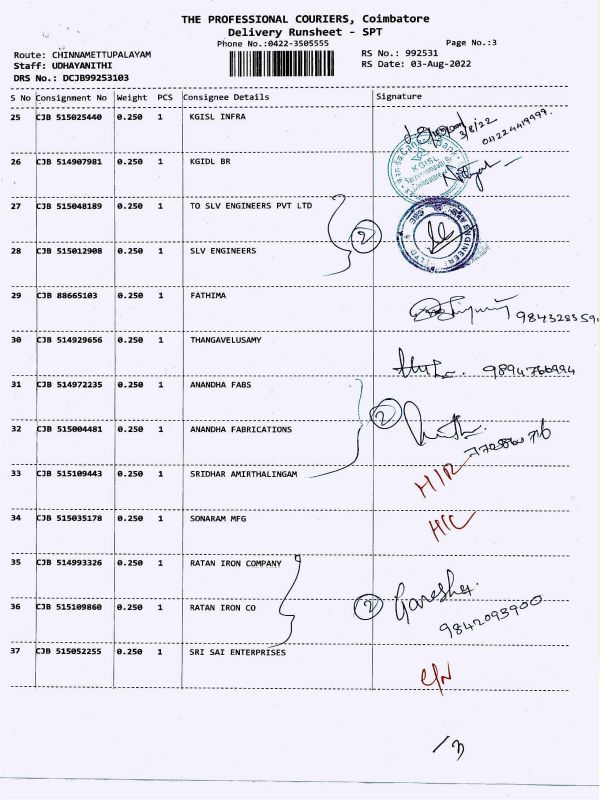 THE PROFESSIONAL COURIERS, Coimbatore
Delivery Runsheet - SPT
Phone No.:0422-3505555
Page No.:3
Route: CHINNAMETTUPALAYAM
RS No.: 992531
Staff: UDHAYANITHI
RS Date: 03-Aug-2022
DRS No.: DCJB99253103
S No Consignment No Weight PCS Consignee Details Signature
25 CJB 515025440 0.250 1 KGISL INFRA
3/8/22
26 CJB 514907981 0.250 1 KGIDL BR
KGISL
27 CJB 515048189 0.250 1 TO SLV ENGINEERS PVT LTD
2
28 CJB 515012908 0.250 1 SLV ENGINEERS
29 CJB 88665103 0.250 1 FATHIMA
30 CJB 514929656 0.250 1 THANGAVELUSAMY
9894766994
31 CJB 514972235 0.250 1 ANANDHA FABS
2
32 CJB 515004481 0.250 1 ANANDHA FABRICATIONS
33 CJB 515109443 0.250 1 SRIDHAR AMIRTHALINGAM
34 CJB 515035178 0.250 1 SONARAM MFG
35 CJB 514993326 0.250 1 RATAN IRON COMPANY
36 CJB 515109860 0.250 1 RATAN IRON CO
2 Ganesha.
9842093900
37 CJB 515052255 0.250 1 SRI SAI ENTERPRISES